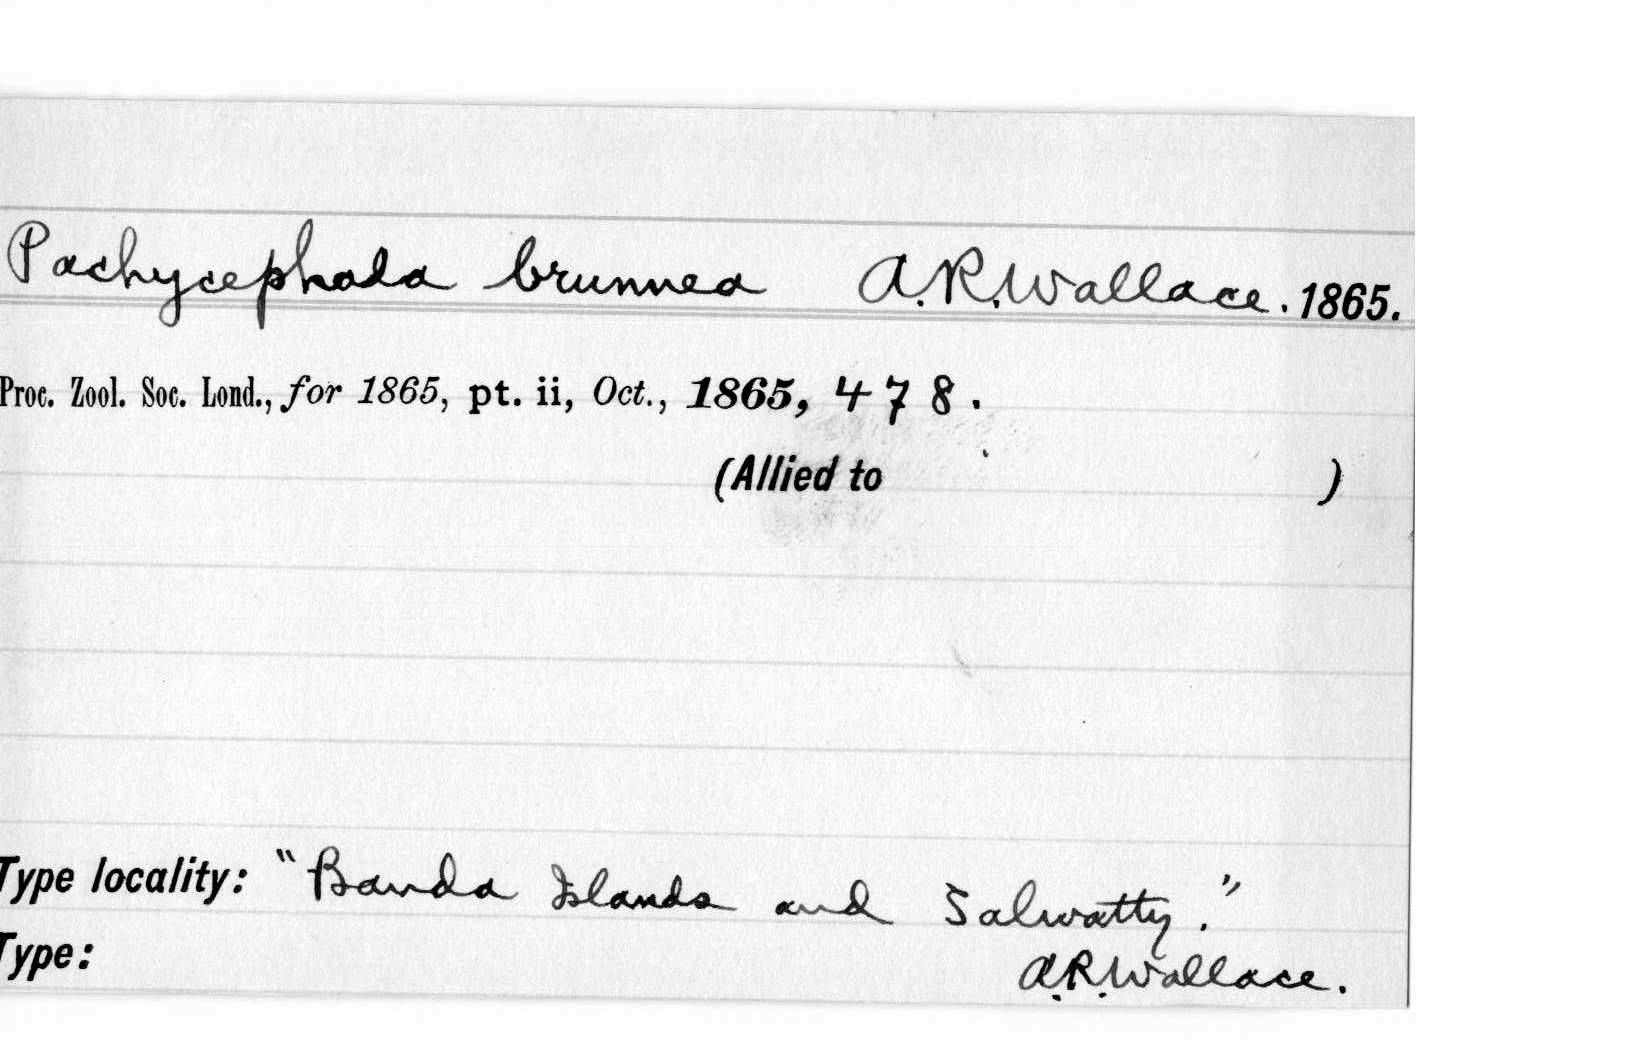 Pachycephala brunnea A.R.Wallace. 1865.
Proc. Zool. Soc. Lond., for 1865, pt. ii, Oct., 1865, 478.
(Allied to )
Type locality: "Banda Islands and Salwatty."
Type: A.R.Wallace.